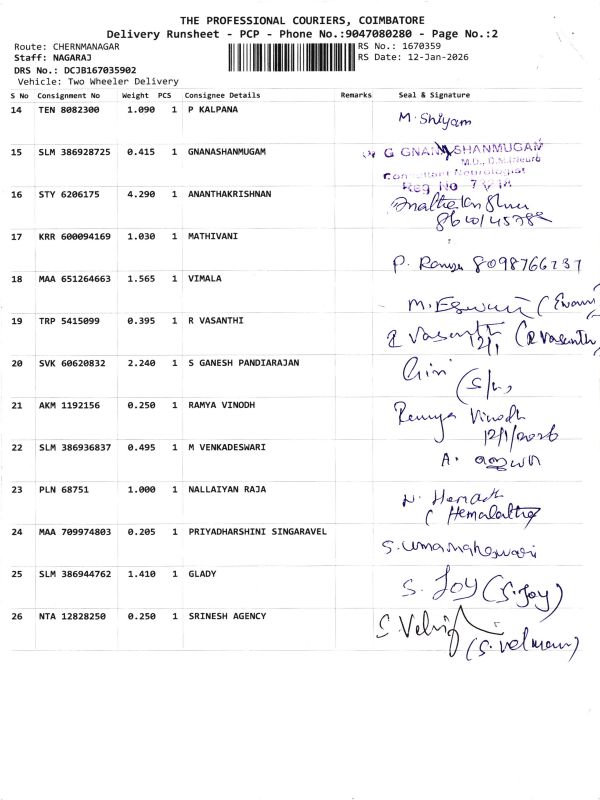 THE PROFESSIONAL COURIERS, COIMBATORE
Delivery Runsheet - PCP - Phone No.:9047080280 - Page No.:2
Route: CHERNMANAGAR
RS No.: 1670359
Staff: NAGARAJ
RS Date: 12-Jan-2026
DRS No.: DCJB167035902
Vehicle: Two Wheeler Delivery
S No Consignment No Weight PCS Consignee Details Remarks Seal & Signature
14 TEN 8082300 1.090 1 P KALPANA M. Shiyam
15 SLM 386928725 0.415 1 GNANASHANMUGAM G GNANASHANMUGAM
Consultant Neurologist
Reg No
16 STY 6206175 4.290 1 ANANTHAKRISHNAN
17 KRR 600094169 1.030 1 MATHIVANI P. 8098766237
18 MAA 651264663 1.565 1 VIMALA M.
19 TRP 5415099 0.395 1 R VASANTHI R Vasanthi (R Vasanthi
12/1
20 SVK 60620832 2.240 1 S GANESH PANDIARAJAN Giri
21 AKM 1192156 0.250 1 RAMYA VINODH Ramya Vinodh
12/1/2026
22 SLM 386936837 0.495 1 M VENKADESWARI A.
23 PLN 68751 1.000 1 NALLAIYAN RAJA N.
( Hemalatha
24 MAA 709974803 0.205 1 PRIYADHARSHINI SINGARAVEL S. Umamaheswari
25 SLM 386944762 1.410 1 GLADY S. Joy (S. Joy)
26 NTA 12828250 0.250 1 SRINESH AGENCY